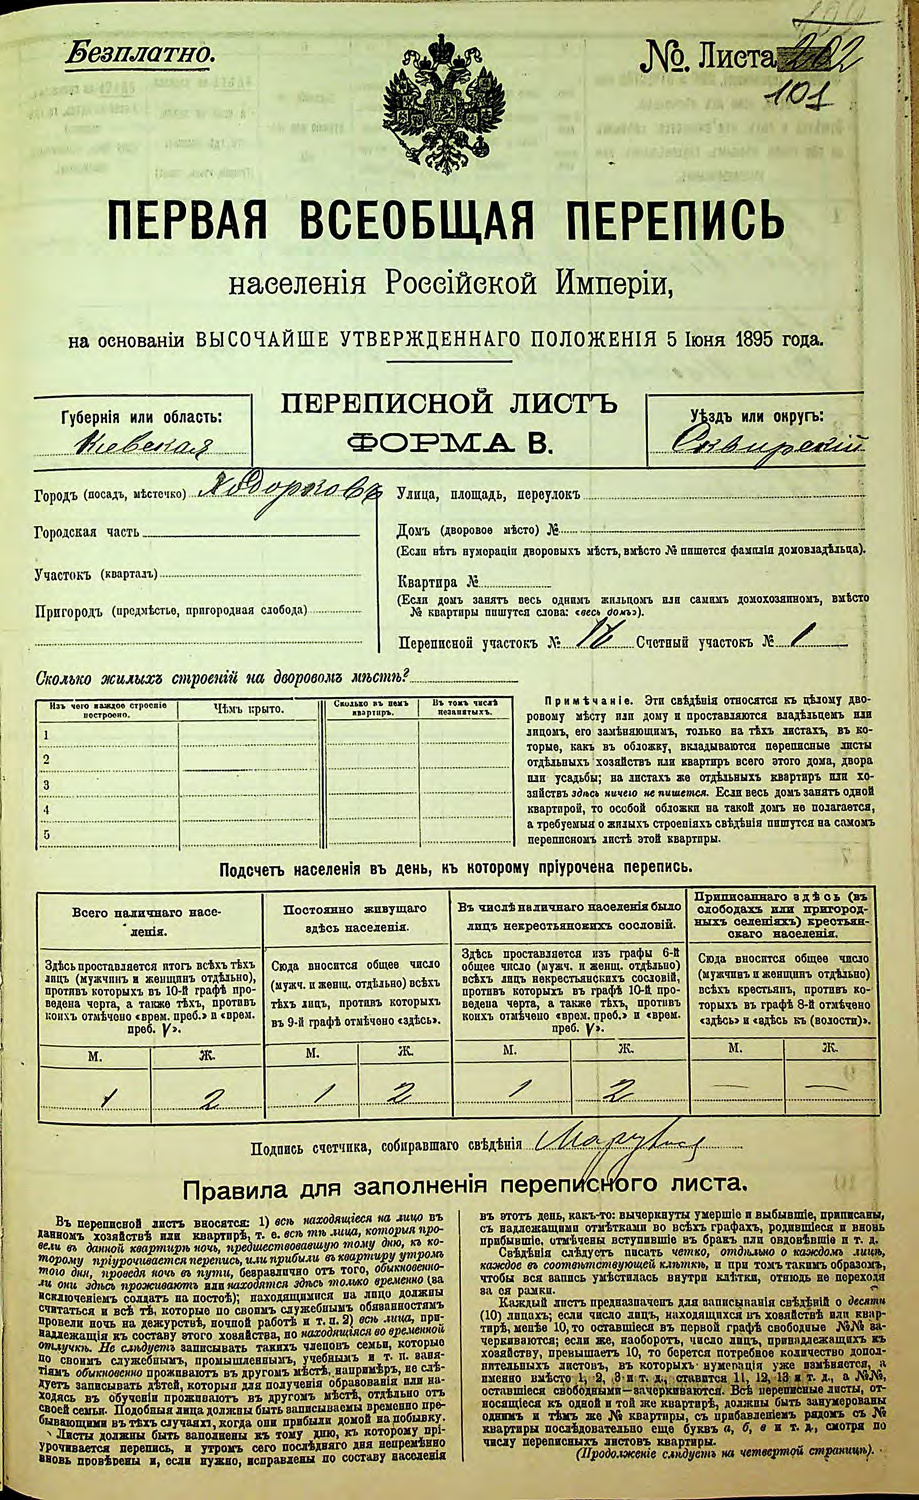 Безплатно.
№. Листа 202
101
ПЕРВАЯ ВСЕОБЩАЯ ПЕРЕПИСЬ
населенія Россійской Имперіи,
на основаніи ВЫСОЧАЙШЕ УТВЕРЖДЕННАГО ПОЛОЖЕНІЯ 5 Іюня 1895 года.
Губернія или область:
Кіевская
ПЕРЕПИСНОЙ ЛИСТЪ
ФОРМА В.
Уѣздъ или округъ:
Сквирскій
Городъ (посадъ, мѣстечко) Ходорковъ
Городская часть
Участокъ (кварталъ)
Пригородъ (предмѣстье, пригородная слобода)
Улица, площадь, переулокъ
Домъ (дворовое мѣсто) №
(Если нѣтъ нумораціи дворовыхъ мѣстъ, вмѣсто № пишется фамилія домовладѣльца).
Квартира №
(Если домъ занятъ весь однимъ жильцомъ или самимъ домохозяиномъ, вмѣсто
№ квартиры пишутся слова: «весь домъ»).
Переписной участокъ № Счетный участокъ № 1
Сколько жилыхъ строеній на дворовомъ мѣстѣ?
Изъ чего каждое строеніе построено.
Чѣмъ крыто.
Сколько въ немъ квартиръ.
Въ томъ числѣ незанятыхъ.
1
2
3
4
5
Примѣчаніе. Эти свѣдѣнія относятся къ цѣлому дво-
ровому мѣсту или дому и проставляются владѣльцемъ или
лицомъ, его замѣняющимъ, только на тѣхъ листахъ, въ ко-
торые, какъ въ обложку, вкладываются переписные листы
отдѣльныхъ хозяйствъ или квартиръ всего этого дома, двора
или усадьбы; на листахъ же отдѣльныхъ квартиръ или хо-
зяйствъ здѣсь ничего не пишется. Если весь домъ занятъ одной
квартирой, то особой обложки на такой домъ не полагается,
а требуемыя о жилыхъ строеніяхъ свѣдѣнія пишутся на самомъ
переписномъ листѣ этой квартиры.
Подсчетъ населенія въ день, къ которому пріурочена перепись.
Всего наличнаго насе-
ленія.
Здѣсь проставляется итогъ всѣхъ тѣхъ
лицъ (мужчинъ и женщинъ отдѣльно),
противъ которыхъ въ 10-й графѣ про-
ведена черта, а также тѣхъ, противъ
коихъ отмѣчено «врем. преб.» и «врем.
преб. V».
М. Ж.
1 2
Постоянно живущаго
здѣсь населенія.
Сюда вносится общее число
(мужч. и женщ. отдѣльно) всѣхъ
тѣхъ лицъ, противъ которыхъ
въ 9-й графѣ отмѣчено «здѣсь».
М. Ж.
1 2
Въ числѣ наличнаго населенія было
лицъ некрестьянскихъ сословій.
Здѣсь проставляется изъ графы 6-й
общее число (мужч. и женщ. отдѣльно)
всѣхъ лицъ некрестьянскихъ сословій,
противъ которыхъ въ графѣ 10-й про-
ведена черта, а также тѣхъ, противъ
коихъ отмѣчено «врем. преб.» и «врем.
преб. V».
М. Ж.
1 2
Приписаннаго здѣсь (въ
слободахъ или пригород-
ныхъ селеніяхъ) крестьян-
скаго населенія.
Сюда вносится общее число
(мужчинъ и женщинъ отдѣльно)
всѣхъ крестьянъ, противъ ко-
торыхъ въ графѣ 8-й отмѣчено
«здѣсь» и «здѣсь къ (волости)».
М. Ж.
— —
Подпись счетчика, собиравшаго свѣдѣнія
Правила для заполненія переписного листа.
Въ переписной листъ вносятся: 1) всѣ находящіеся на лицо въ
данномъ хозяйствѣ или квартирѣ, т. е. всѣ тѣ лица, которыя про-
вели въ данной квартирѣ ночь, предшествовавшую тому дню, къ ко-
торому пріурочивается перепись, или прибыли въ квартиру утромъ
того дня, проведя ночь въ пути, безразлично отъ того, обыкновенно-
ли они здѣсь проживаютъ или находятся здѣсь только временно (за
исключеніемъ солдатъ на постоѣ); находящимися на лицо должны
считаться и всѣ тѣ, которые по своимъ служебнымъ обязанностямъ
провели ночь на дежурствѣ, ночной работѣ и т. п. 2) всѣ лица, при-
надлежащія къ составу этого хозяйства, но находящіяся во временной
отлучкѣ. Не слѣдуетъ записывать такихъ членовъ семьи, которые
по своимъ служебнымъ, промышленнымъ, учебнымъ и т. п. заня-
тіямъ обыкновенно проживаютъ въ другомъ мѣстѣ, напримѣръ, не слѣ-
дуетъ записывать дѣтей, которыя для полученія образованія или на-
ходясь въ обученіи проживаютъ въ другомъ мѣстѣ, отдѣльно отъ
своей семьи. Подобныя лица должны быть записываемы временно пре-
бывающими въ тѣхъ случаяхъ, когда они прибыли домой на побывку.
Листы должны быть заполнены къ тому дню, къ которому прі-
урочивается перепись, и утромъ сего послѣдняго дня непремѣнно
вновь провѣрены и, если нужно, исправлены по составу населенія
въ этотъ день, какъ-то: вычеркнуты умершіе и выбывшіе, приписаны,
съ надлежащими отмѣтками во всѣхъ графахъ, родившіеся и вновь
прибывшіе, отмѣчены вступившіе въ бракъ или овдовѣвшіе и т. д.
Свѣдѣнія слѣдуетъ писать четко, отдѣльно о каждомъ лицѣ,
каждое въ соотвѣтствующей клѣткѣ, и при томъ такимъ образомъ,
чтобы вся запись умѣстилась внутри клѣтки, отнюдь не переходя
за ея рамки.
Каждый листъ предназначенъ для записыванія свѣдѣній о десяти
(10) лицахъ; если число лицъ, находящихся въ хозяйствѣ или квар-
тирѣ, менѣе 10, то оставшіеся въ первой графѣ свободные №№ за-
черкиваются; если же, наоборотъ, число лицъ, принадлежащихъ къ
хозяйству, превышаетъ 10, то берется потребное количество допол-
нительныхъ листовъ, въ которыхъ нумерація уже измѣняется, а
именно вмѣсто 1, 2, 3 и т. д., ставится 11, 12, 13 и т. д., а №№,
оставшіеся свободными—зачеркиваются. Всѣ переписные листы, от-
носящіеся къ одной и той же квартирѣ, должны быть занумерованы
однимъ и тѣмъ же № квартиры, съ прибавленіемъ рядомъ съ №
квартиры послѣдовательно еще буквъ а, б, в и т. д., смотря по
числу переписныхъ листовъ квартиры.
(Продолженіе слѣдуетъ на четвертой страницѣ).